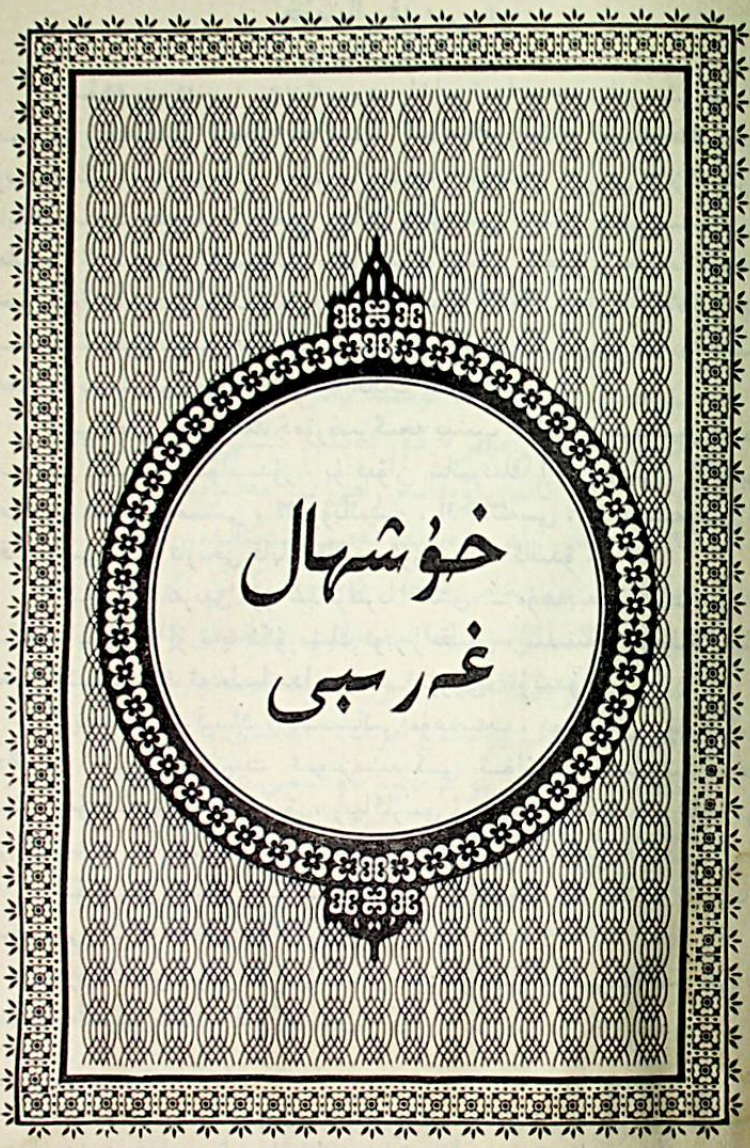 خۇشھال
غەرىبى